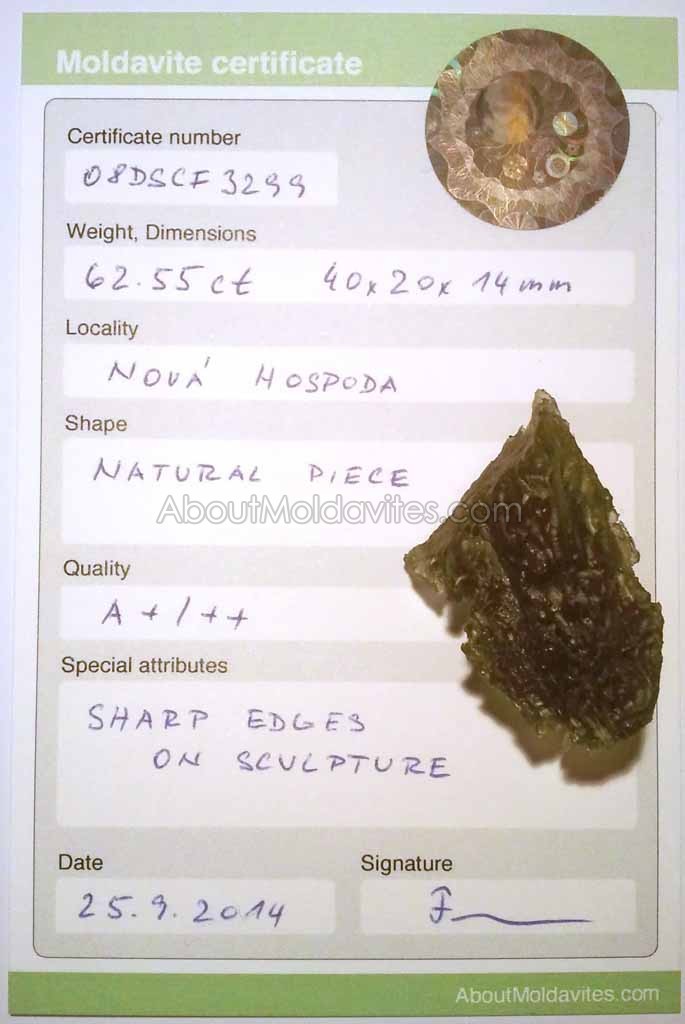 Moldavite certificate
Certificate number
08DSCF3299
Weight, Dimensions
62.55 ct 40x20x14mm
Locality
NOVÁ HOSPODA
Shape
NATURAL PIECE
AboutMoldavites.com
Quality
A+/++
Special attributes
SHARP EDGES
ON SCULPTURE
Date Signature
25.9.2014
AboutMoldavites.com